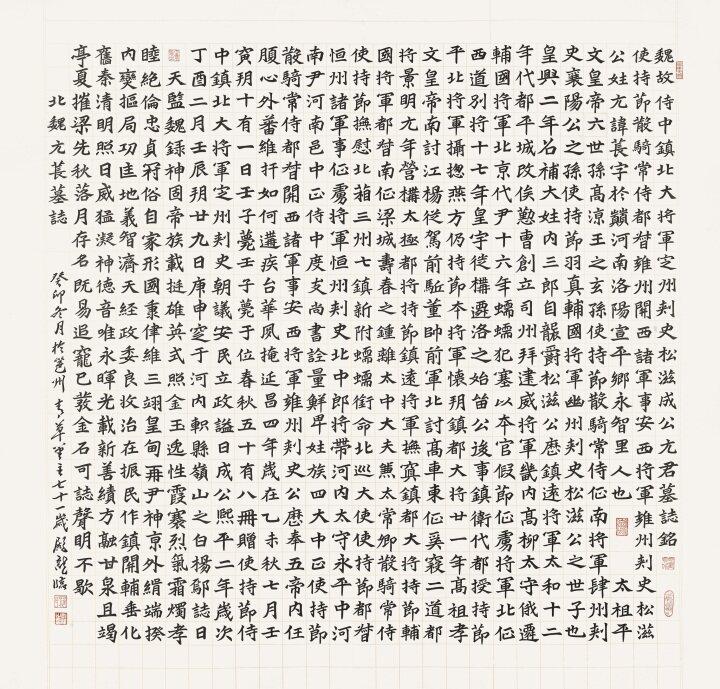 魏故侍中鎮北大將軍定州刾史松滋成公元君墓誌銘
使持節散騎常侍都督雍州關西諸軍事安西將軍雍州刾史松滋
公姓元諱萇字於巔河南洛陽宣平鄉永智里人也 太祖平
文皇帝六世孫高涼王之玄孫使持節散騎常侍征南將軍肆州刾
史襄陽公之孫使持節羽真輔國將軍幽州刾史松滋公之世子也
皇興二年召補大姓內三郎自襲爵松滋公歷鎮遠將軍太和十二
年代都平城改俟懃曹創立司州拜建威將軍畿內高柳太守俄遷
輔國將軍北京代尹十六年蠕蠕犯塞以本官假節征虜將軍北征
西道別將十七年皇宇徙構遷洛之始留公後事鎮衛代都授持節
平北將軍攝揔燕方仍持節本將軍懷朔鎮都大將廿一年高祖孝
文皇帝南討江楊從駕前駈董帥前軍北討高車東征奚寇二道都
將景明元年營構太極都將持節鎮遠將軍撫寘鎮都大將持節輔
國將軍都督南征梁城壽春之鍾離太中大夫兼太常卿散騎常侍
使持節撫慰北箱三州七鎮新附蠕蠕銜命北巡大使使持節都督
恒州諸軍事征虜將軍恒州刾史北中郎將帶河內太守永平中河
南尹河南邑中正侍中度支尚書詮量鮮卑姓族四大中正使持節
散騎常侍都督關西諸軍事安西將軍雍州刾史公歷奉五帝內任
腹心外蕃維扞如何遘疾台華風掩延昌四年歲在乙未秋七月壬
寅朔十有一日壬子薨王子薨于位春秋五十有八冊贈使持節侍
中鎮北大將軍定州刾史朝議安民立政謚曰成公熙平二年歲次
丁酉二月壬辰朔廿九日庚申窆于河內軹縣嶺山之白楊鄔誌曰
天監魏錄神固帝族載挺雄英式照金玉逸性霞褰烈氣霜燭孝
睦絕倫忠貞冠俗自家形國秉律維三翊皇甸再尹神京外緝端揆
內燮摳局功匡地義智濟天經政委良牧治在振民作鎮關輔垂化
舊秦清明照日威猛凝神德音唯永暉光載新善績方融甘泉且竭
亭夏摧梁先秋落月存名既易追寵已蕟金石可誌聲明不歇
北魏元萇墓誌 癸卯冬月於邕州青草堂主七十一歲殷龍